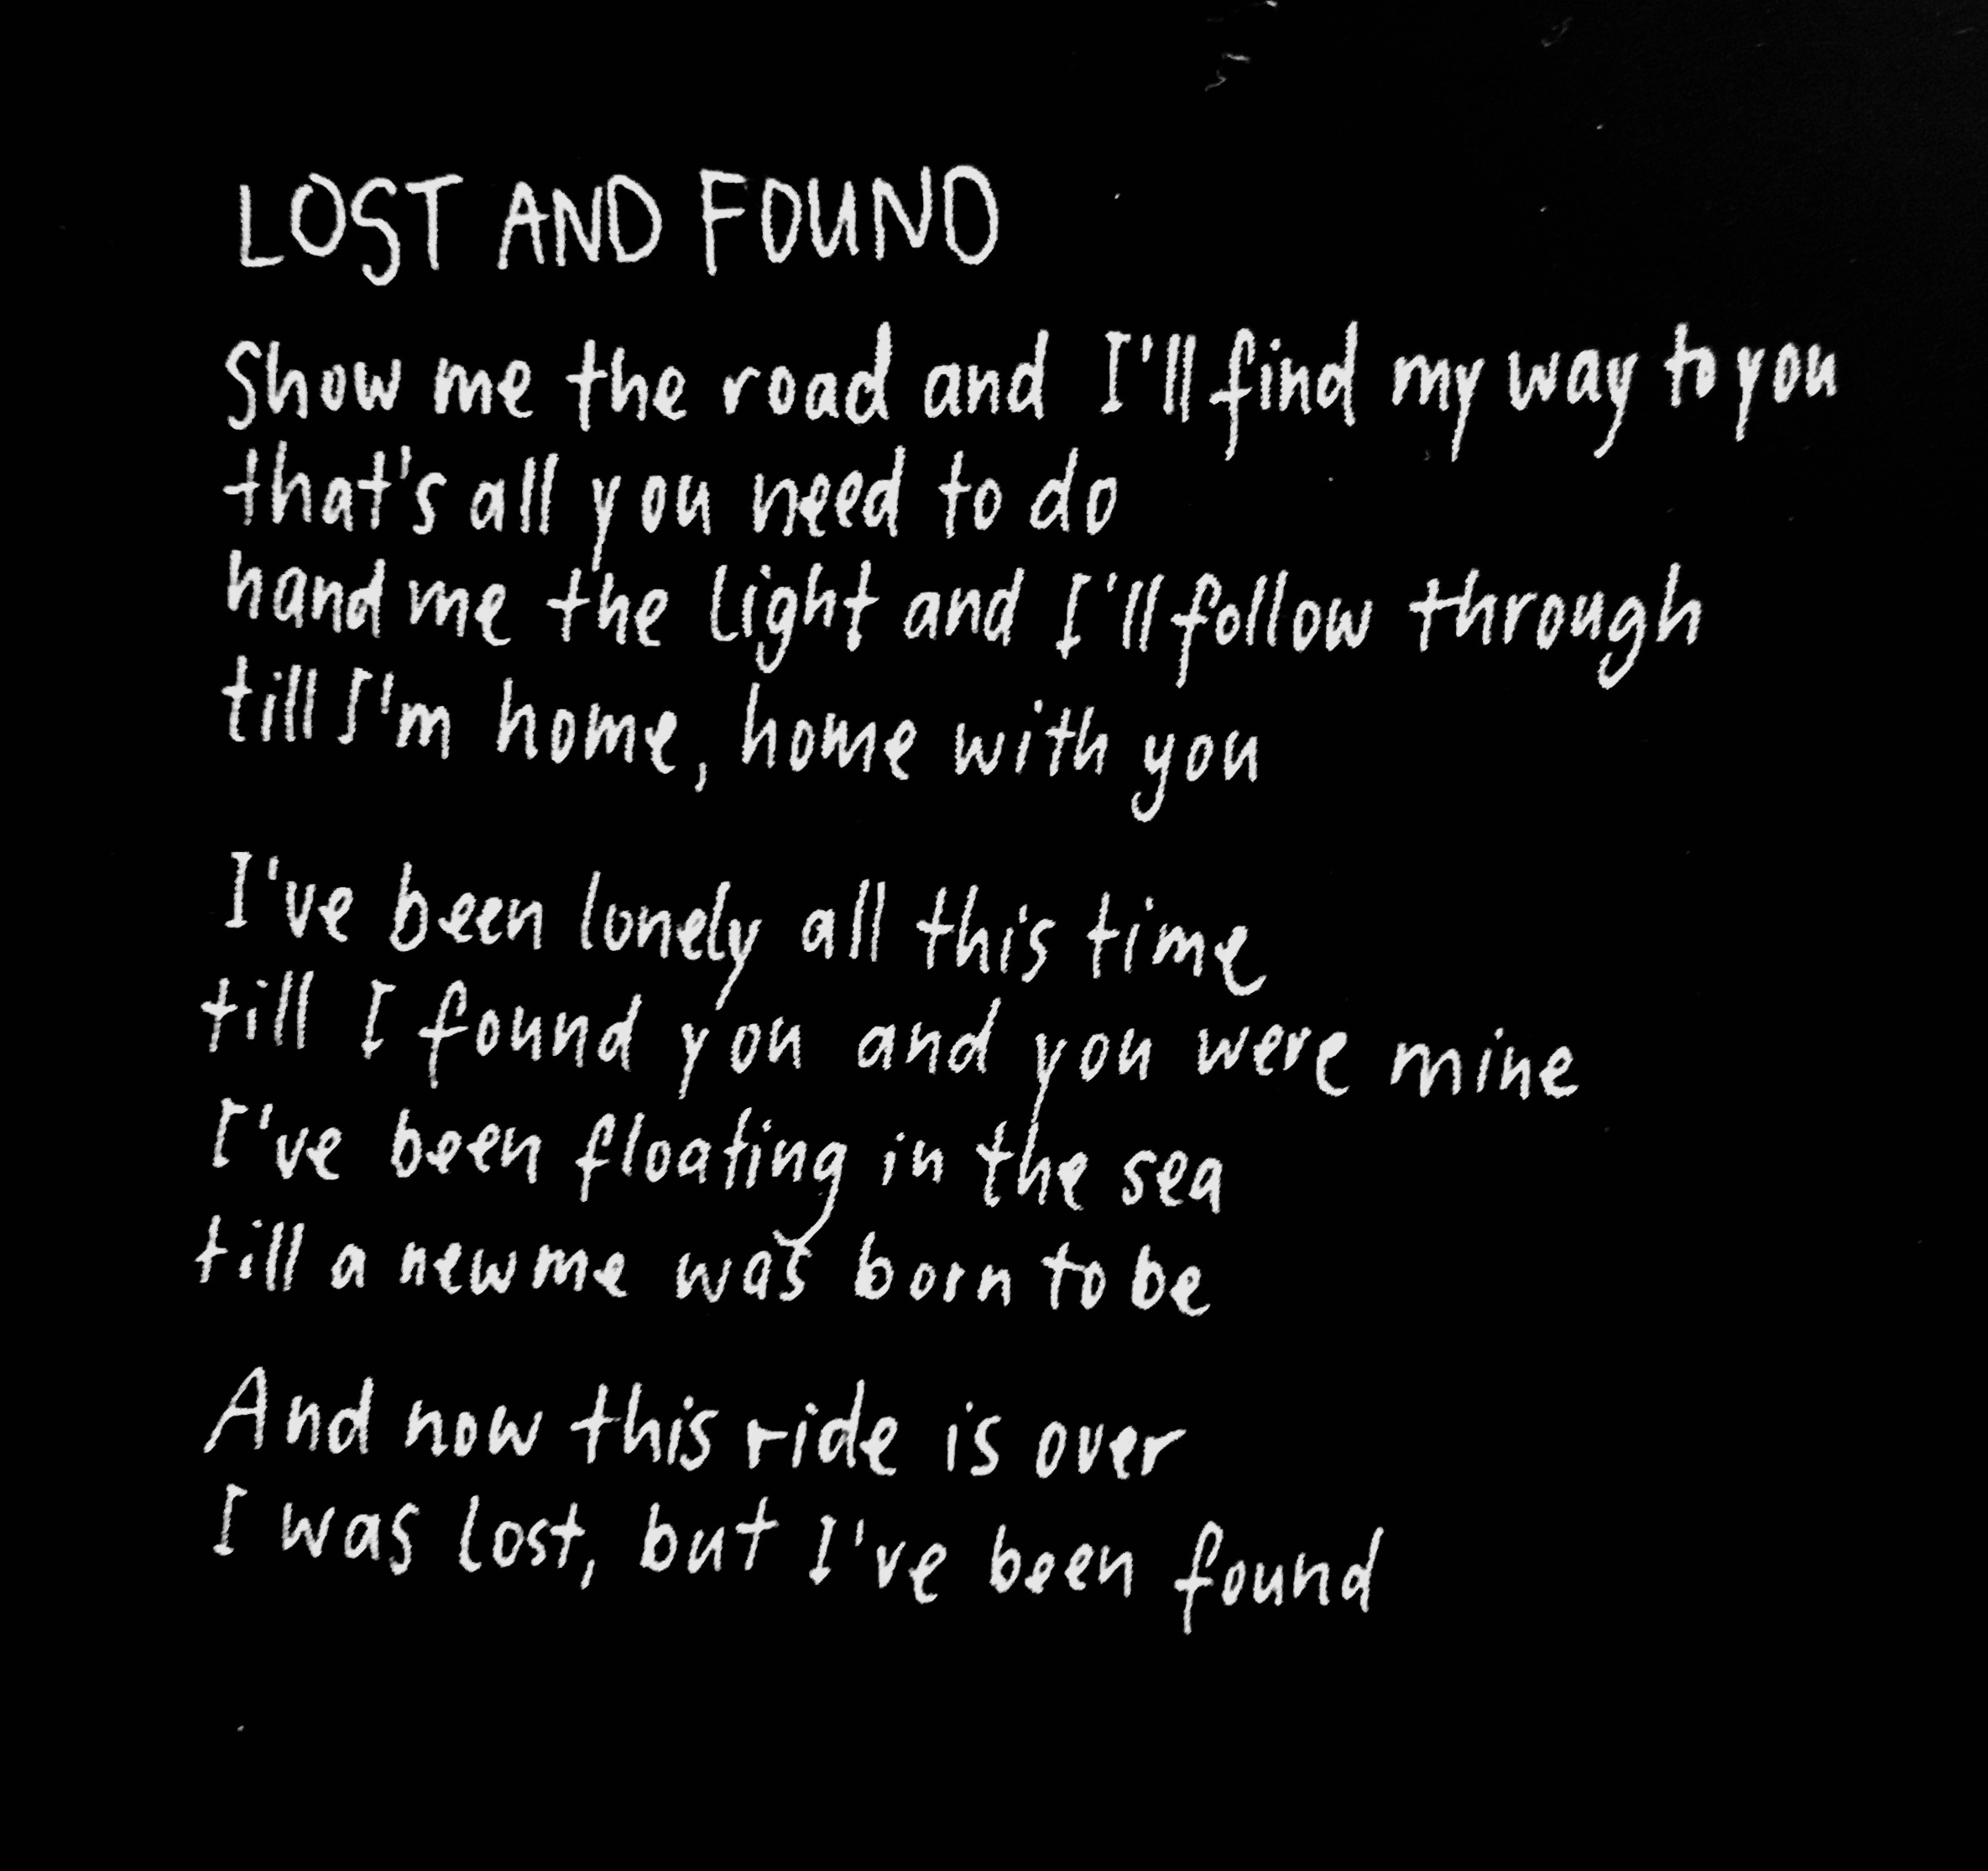 LOST AND FOUND
Show me the road and I'll find my way to you
that's all you need to do
hand me the light and I'll follow through
till I'm home, home with you
I've been lonely all this time
till I found you and you were mine
I've been floating in the sea
till a new me was born to be
And now this ride is over
I was lost, but I've been found